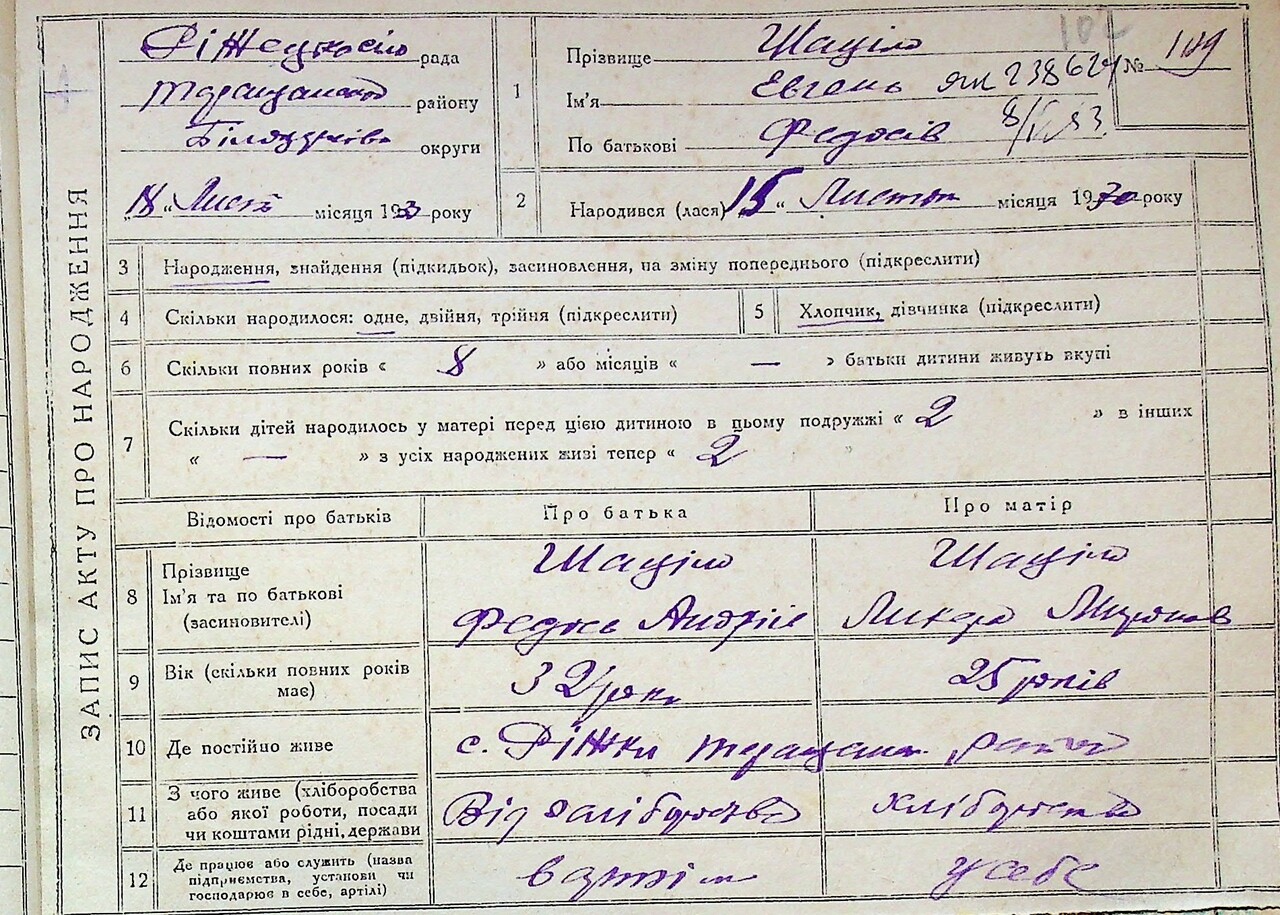 ЗАПИС АКТУ ПРО НАРОДЖЕННЯ
рада
району
округи
18 « Лист місяця 193 року
102
№ 109
1 Прізвище Шаціло
Ім'я Евгень ЯШ 238624
По батькові Федосів 8/IV 83
2 Народився (лася) 15 « Листоп місяця 1930 року
3 Народження, знайдення (підкидьок), засиновлення, на зміну попереднього (підкреслити)
4 Скільки народилося: одне, двійня, трійня (підкреслити)
5 Хлопчик, дівчинка (підкреслити)
6 Скільки повних років « 8 » або місяців « — » батьки дитини живуть вкупі
7 Скільки дітей народилось у матері перед цією дитиною в цьому подружжі « 2 » в інших
« — » з усіх народжених живі тепер « 2 »
Відомості про батьків Про батька Про матір
8 Прізвище Шаціло Шаціло
Ім'я та по батькові Федось Андріів Ликера Миронов
(засиновителі)
9 Вік (скільки повних років 32 роки 25 років
має)
10 Де постійно живе с. Ріжки таращанс.
11 З чого живе (хліборобства
або якої роботи, посади Від хліборобства хліборобства
чи коштами рідні, держави
12 Де працює або служить (назва
підприємства, установи чи в артіли у себе
господарює в себе, артілі)